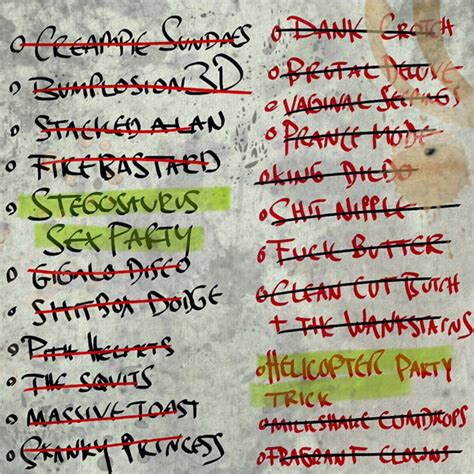 CREAMPIE SUNDAES
BUMPLOSION 3D
STACKED ALAN
FIREBASTARD
STEGOSAURUS
SEX PARTY
GIGALO DISCO
SHITBOX DODGE
PITH HELMETS
THE SQUITS
MASSIVE TOAST
SKANKY PRINCESS
DANK CROTCH
BRUTAL DELUXE
VAGINAL
PRANCE MODE
KING DILDO
SHIT NIPPLE
FUCK BUTTER
CLEAN CUT BUTCH
+ THE WANKSTAINS
HELICOPTER PARTY
TRICK
MILKSHAKE CUMDROPS
FRAGRANT CLOWNS